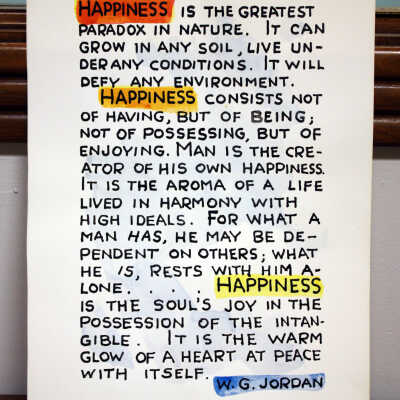 HAPPINESS IS THE GREATEST
PARADOX IN NATURE. IT CAN
GROW IN ANY SOIL, LIVE UN-
DER ANY CONDITIONS. IT WILL
DEFY ANY ENVIRONMENT.
HAPPINESS CONSISTS NOT
OF HAVING, BUT OF BEING;
NOT OF POSSESSING, BUT OF
ENJOYING. MAN IS THE CRE-
ATOR OF HIS OWN HAPPINESS.
IT IS THE AROMA OF A LIFE
LIVED IN HARMONY WITH
HIGH IDEALS. FOR WHAT A
MAN HAS, HE MAY BE DE-
PENDENT ON OTHERS; WHAT
HE IS, RESTS WITH HIM A-
LONE. . . . HAPPINESS
IS THE SOUL'S JOY IN THE
POSSESSION OF THE INTAN-
GIBLE. IT IS THE WARM
GLOW OF A HEART AT PEACE
WITH ITSELF. W. G. JORDAN